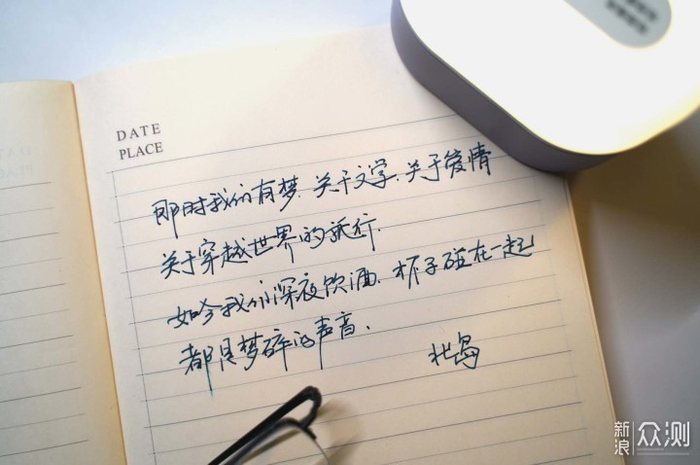 DATE
PLACE
那时我们有梦.关于文学.关于爱情
关于穿越世界的旅行.
如今我们深夜饮酒.杯子碰在一起
都是梦碎的声音.
北岛
新浪 众测